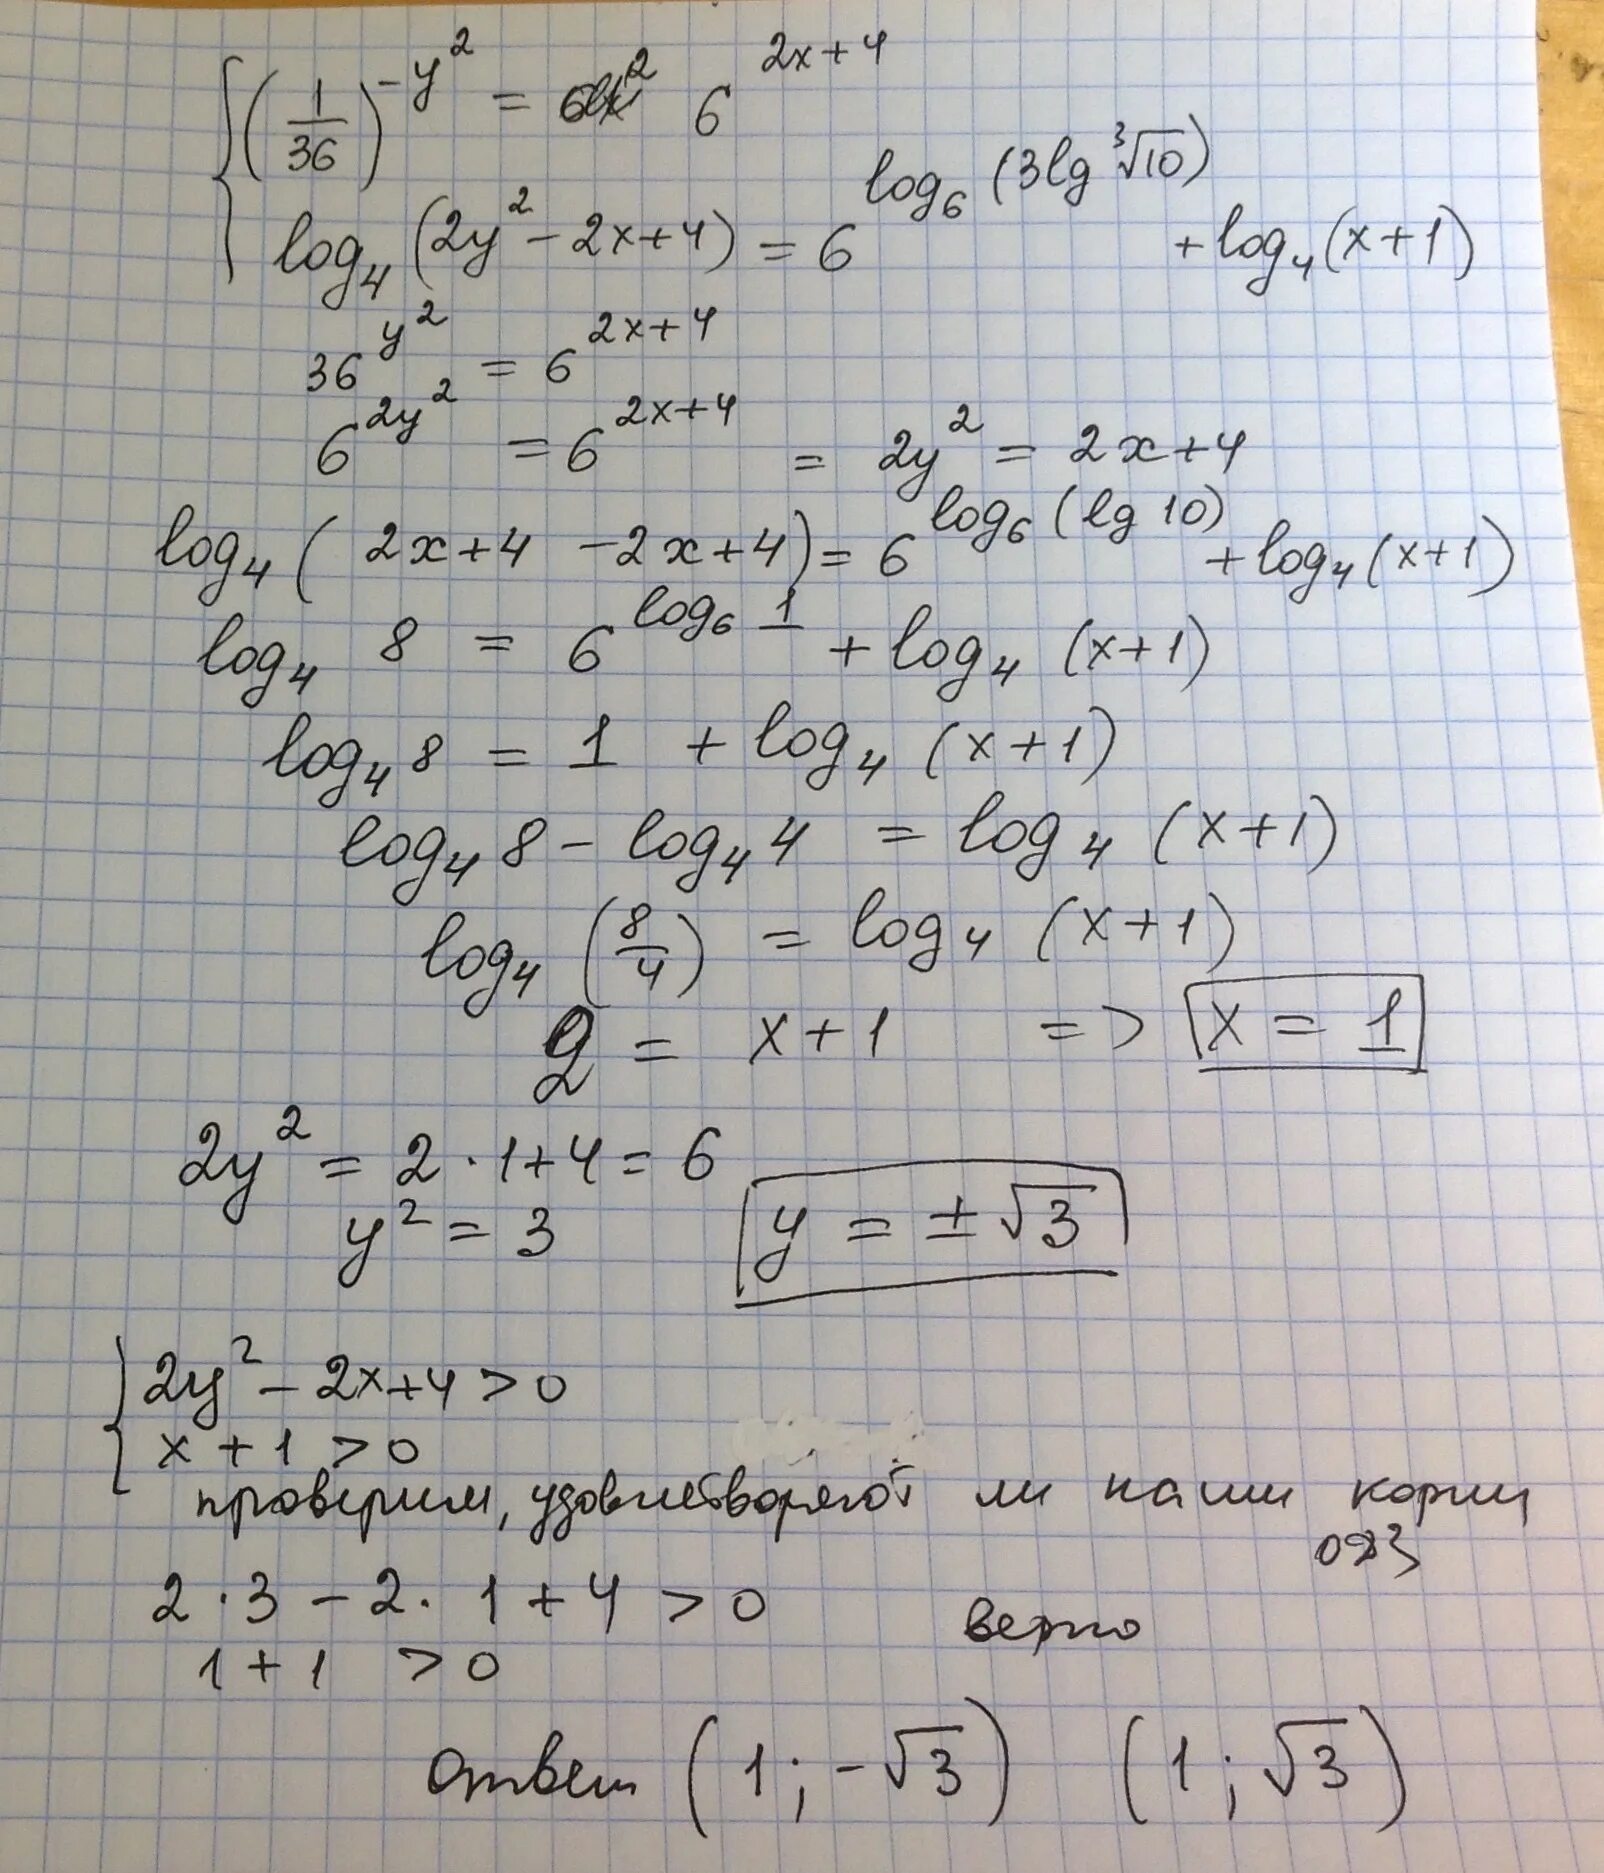 (1/36)^(-y²) = 6^(2x+4)
log₄(2y² - 2x + 4) = 6^(log₆(3lg ∛10)) + log₄(x+1)
36^(y²) = 6^(2x+4)
6^(2y²) = 6^(2x+4) = 2y² = 2x+4
log₄( 2x+4 - 2x+4) = 6^(log₆(lg 10)) + log₄(x+1)
log₄ 8 = 6^(log₆ 1) + log₄ (x+1)
log₄ 8 = 1 + log₄ (x+1)
log₄ 8 - log₄ 4 = log₄ (x+1)
log₄ (8/4) = log₄ (x+1)
2 = x+1 => x = 1
2y² = 2 · 1+4 = 6
y² = 3 y = ±√3
2y² - 2x+4 > 0
x + 1 > 0
проверим, удовлетворяют ли наши корни
ОДЗ
2 · 3 - 2 · 1 + 4 > 0 верно
1 + 1 > 0
ответ (1 ; -√3) (1 ; √3)